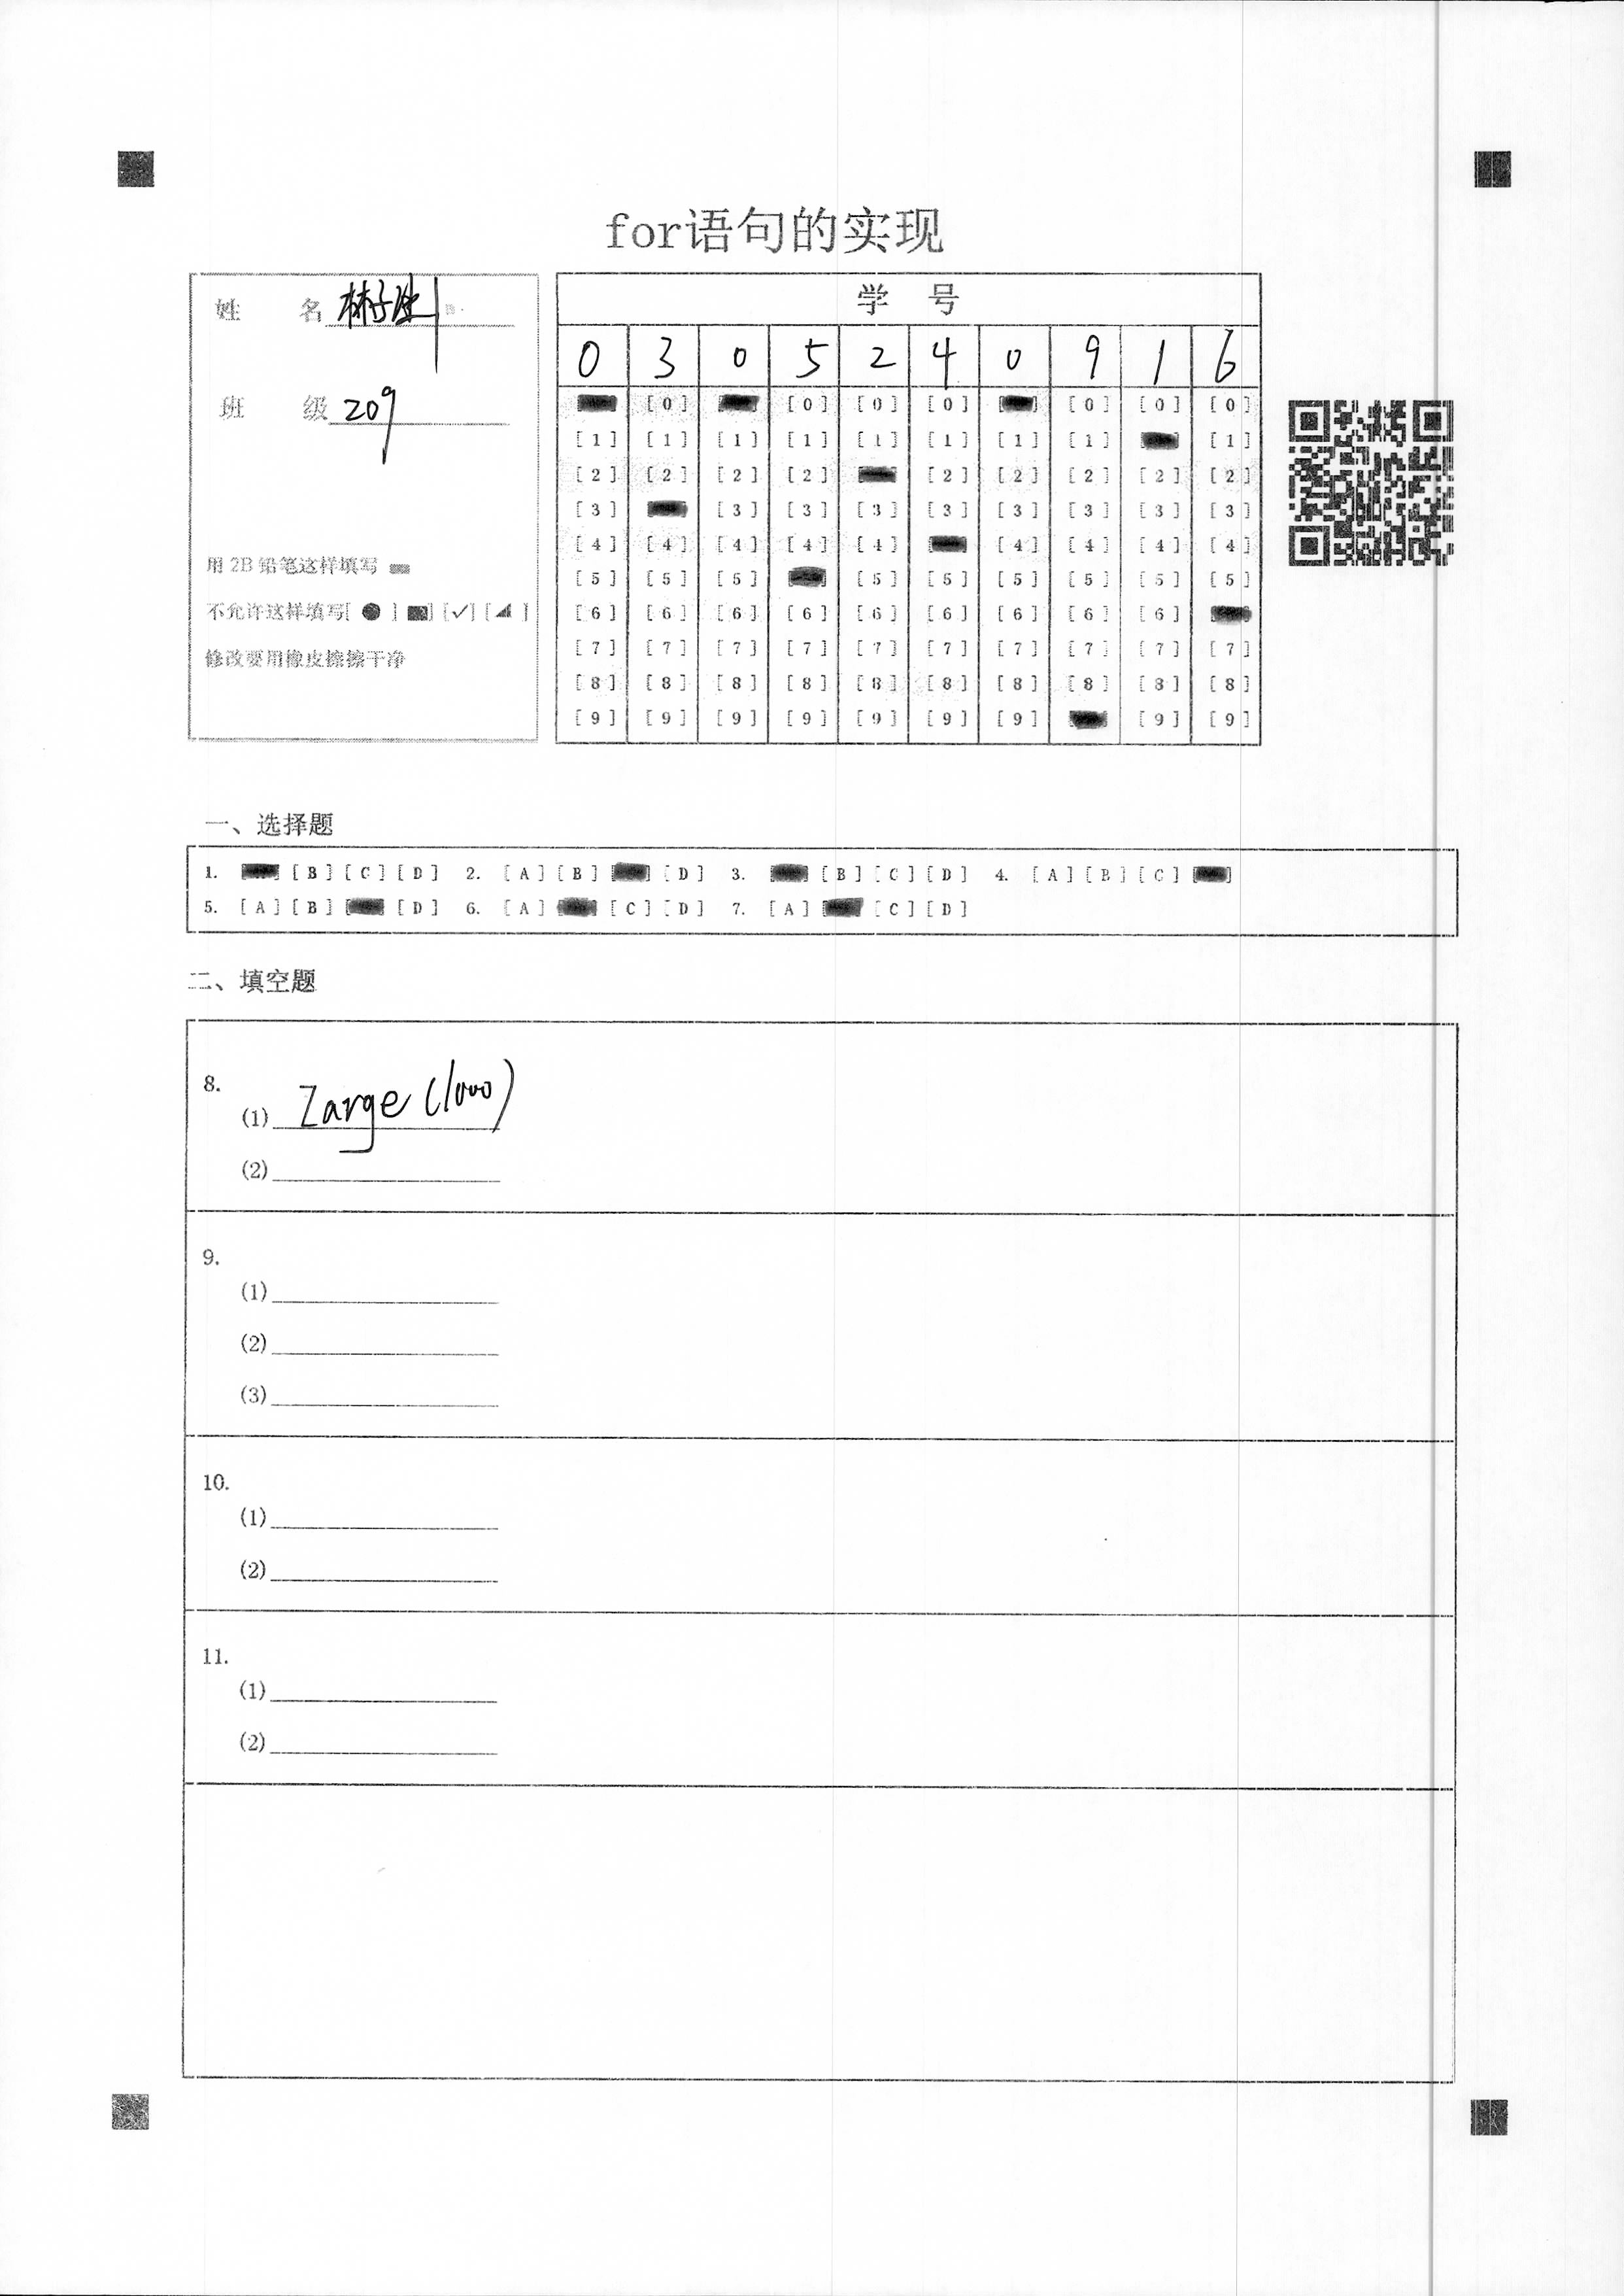 for语句的实现
姓 名 林子
班 级 209
用 2B 铅笔这样填写
不允许这样填写[ ● ] [■] [✓] [◢ ]
修改要用橡皮擦擦干净
学 号
0 3 0 5 2 4 0 9 1 6
[0] [0] [0] [0] [0] [0] [0]
[1] [1] [1] [1] [1] [1] [1] [1] [1]
[2] [2] [2] [2] [2] [2] [2] [2] [2]
[3] [3] [3] [3] [3] [3] [3] [3] [3]
[4] [4] [4] [4] [4] [4] [4] [4] [4]
[5] [5] [5] [5] [5] [5] [5] [5] [5]
[6] [6] [6] [6] [6] [6] [6] [6] [6]
[7] [7] [7] [7] [7] [7] [7] [7] [7] [7]
[8] [8] [8] [8] [8] [8] [8] [8] [8] [8]
[9] [9] [9] [9] [9] [9] [9] [9] [9]
一、选择题
1. [B] [C] [D] 2. [A] [B] [D] 3. [B] [C] [D] 4. [A] [B] [C]
5. [A] [B] [D] 6. [A] [C] [D] 7. [A] [C] [D]
二、填空题
8.
(1) Zarge (1000)
(2)
9.
(1)
(2)
(3)
10.
(1)
(2)
11.
(1)
(2)